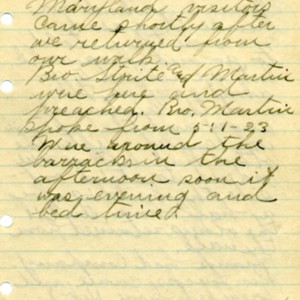 Maryland visitors
came shortly after
we returned from
our walk.
Bro. Strite & Martin
were here and
preached. Bro. Martin
spoke from 5:1-23
Were around the
barracks in the
afternoon soon it
was evening and
bed time.